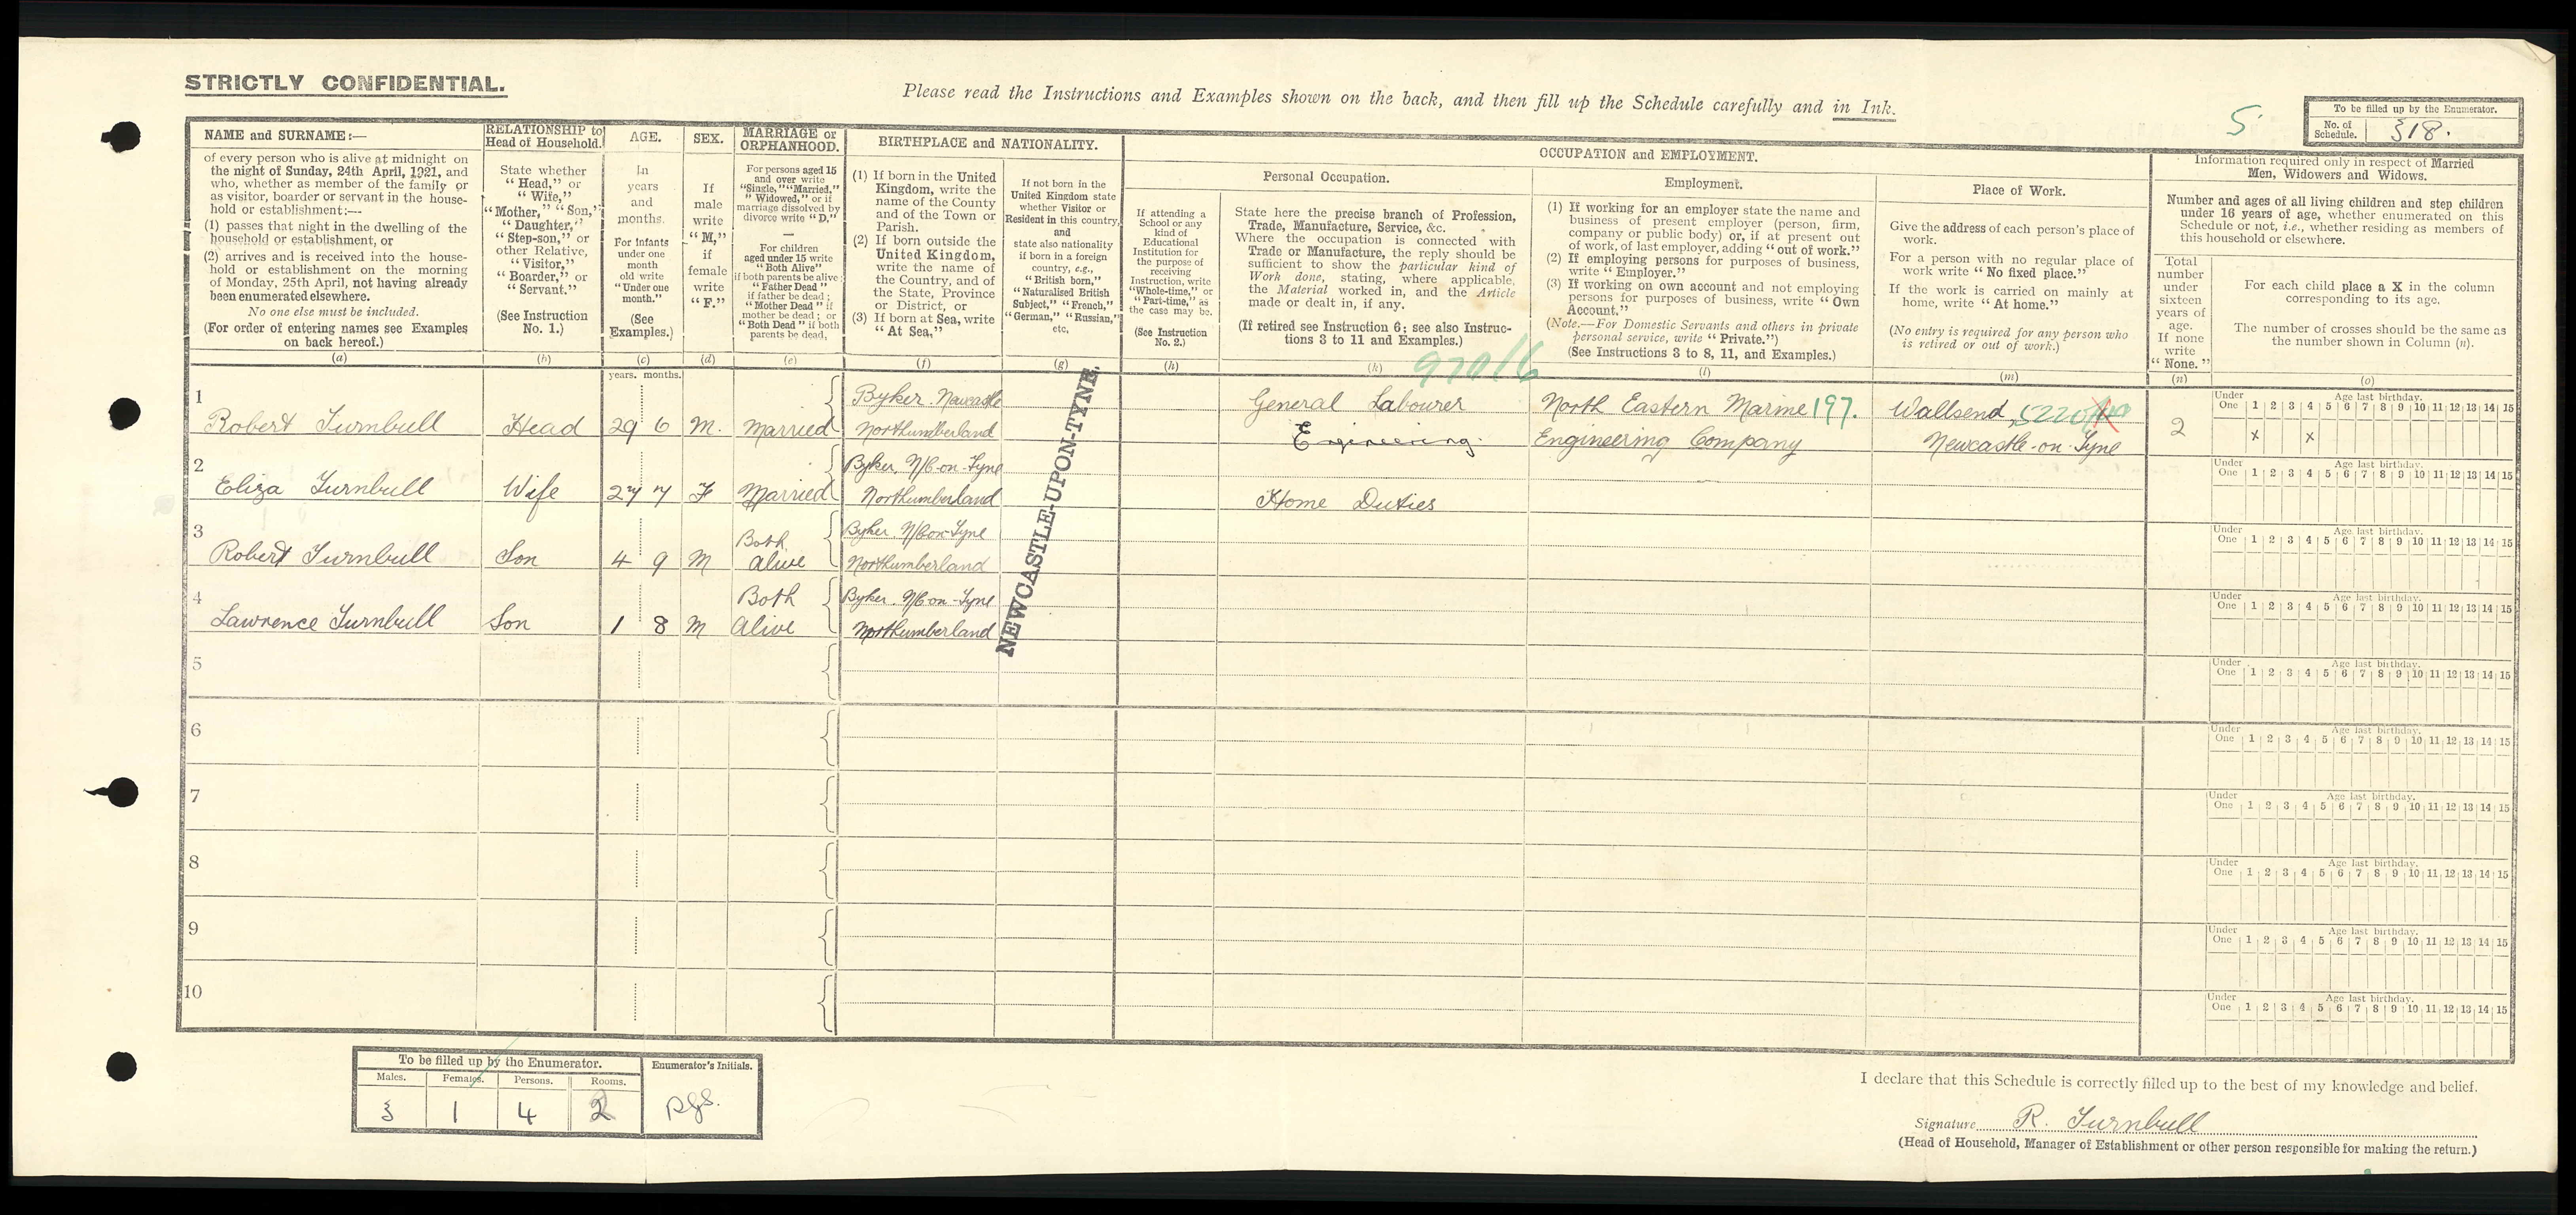 STRICTLY CONFIDENTIAL.
Please read the Instructions and Examples shown on the back, and then fill up the Schedule carefully and in Ink.
5
To be filled up by the Enumerator.
No. of Schedule. 318.
NAME and SURNAME:—
of every person who is alive at midnight on
the night of Sunday, 24th April, 1921, and
who, whether as member of the family or
as visitor, boarder or servant in the house-
hold or establishment:—
(1) passes that night in the dwelling of the
household or establishment, or
(2) arrives and is received into the house-
hold or establishment on the morning
of Monday, 25th April, not having already
been enumerated elsewhere.
No one else must be included.
(For order of entering names see Examples
on back hereof.)
(a)
RELATIONSHIP to
Head of Household.
State whether
"Head," or
"Wife,"
"Mother," "Son,"
"Daughter,"
"Step-son," or
other Relative,
"Visitor,"
"Boarder," or
"Servant."
(See Instruction
No. 1.)
(b)
AGE.
In
years
and
months.
For infants
under one
month
old write
"Under one
month."
(See
Examples.)
(c)
SEX.
If
male
write
"M,"
if
female
write
"F."
(d)
MARRIAGE or
ORPHANHOOD.
For persons aged 15
and over write
"Single," "Married,"
"Widowed," or if
marriage dissolved by
divorce write "D."
—
For children
aged under 15 write
"Both Alive"
if both parents be alive;
"Father Dead"
if father be dead;
"Mother Dead" if
mother be dead; or
"Both Dead" if both
parents be dead.
(e)
BIRTHPLACE and NATIONALITY.
(1) If born in the United
Kingdom, write the
name of the County
and of the Town or
Parish.
(2) If born outside the
United Kingdom,
write the name of
the Country, and of
the State, Province
or District, or
(3) If born at Sea, write
"At Sea."
(f)
If not born in the
United Kingdom state
whether Visitor or
Resident in this country,
and
state also nationality
if born in a foreign
country, e.g.,
"British born,"
"Naturalised British
Subject," "French,"
"German," "Russian,"
etc.
(g)
OCCUPATION and EMPLOYMENT.
Personal Occupation.
If attending a
School or any
kind of
Educational
Institution for
the purpose of
receiving
Instruction, write
"Whole-time," or
"Part-time," as
the case may be.
(See Instruction
No. 2.)
(h)
State here the precise branch of Profession,
Trade, Manufacture, Service, &c.
Where the occupation is connected with
Trade or Manufacture, the reply should be
sufficient to show the particular kind of
Work done, stating, where applicable,
the Material worked in, and the Article
made or dealt in, if any.
(If retired see Instruction 6; see also Instruc-
tions 3 to 11 and Examples.)
(k)
Employment.
(1) If working for an employer state the name and
business of present employer (person, firm,
company or public body) or, if at present out
of work, of last employer, adding "out of work."
(2) If employing persons for purposes of business,
write "Employer."
(3) If working on own account and not employing
persons for purposes of business, write "Own
Account."
(Note.—For Domestic Servants and others in private
personal service, write "Private.")
(See Instructions 3 to 8, 11, and Examples.)
(l)
Place of Work.
Give the address of each person's place of
work.
For a person with no regular place of
work write "No fixed place."
If the work is carried on mainly at
home, write "At home."
(No entry is required for any person who
is retired or out of work.)
(m)
Information required only in respect of Married
Men, Widowers and Widows.
Number and ages of all living children and step children
under 16 years of age, whether enumerated on this
Schedule or not, i.e., whether residing as members of
this household or elsewhere.
Total
number
under
sixteen
years of
age.
If none
write
"None."
(n)
For each child place a X in the column
corresponding to its age.
The number of crosses should be the same as
the number shown in Column (n).
(o)
years. months.
970/6
NEWCASTLE-UPON-TYNE.
1
Robert Turnbull Head 29 6 M. Married Byker. Newcastle Northumberland General Labourer Engineering. North Eastern Marine 197. Engineering Company Wallsend, Newcastle-on-Tyne 2
Under One 1 2 3 4 5 6 7 8 9 10 11 12 13 14 15
Age last birthday.
x x
2
Eliza Turnbull Wife 27 7 F Married Byker, N/C-on-Tyne Northumberland Home Duties
Under One 1 2 3 4 5 6 7 8 9 10 11 12 13 14 15
Age last birthday.
3
Robert Turnbull Son 4 9 M Both alive Byker. N/C on Tyne Northumberland
Under One 1 2 3 4 5 6 7 8 9 10 11 12 13 14 15
Age last birthday.
4
Lawrence Turnbull Son 1 8 M Both Alive Byker. N/C-on-Tyne Northumberland
Under One 1 2 3 4 5 6 7 8 9 10 11 12 13 14 15
Age last birthday.
5
Under One 1 2 3 4 5 6 7 8 9 10 11 12 13 14 15
Age last birthday.
6
Under One 1 2 3 4 5 6 7 8 9 10 11 12 13 14 15
Age last birthday.
7
Under One 1 2 3 4 5 6 7 8 9 10 11 12 13 14 15
Age last birthday.
8
Under One 1 2 3 4 5 6 7 8 9 10 11 12 13 14 15
Age last birthday.
9
Under One 1 2 3 4 5 6 7 8 9 10 11 12 13 14 15
Age last birthday.
10
Under One 1 2 3 4 5 6 7 8 9 10 11 12 13 14 15
Age last birthday.
To be filled up by the Enumerator.
Males. Females. Persons. Rooms.
3 1 4 2
Enumerator's Initials.
I declare that this Schedule is correctly filled up to the best of my knowledge and belief.
Signature R. Turnbull
(Head of Household, Manager of Establishment or other person responsible for making the return.)